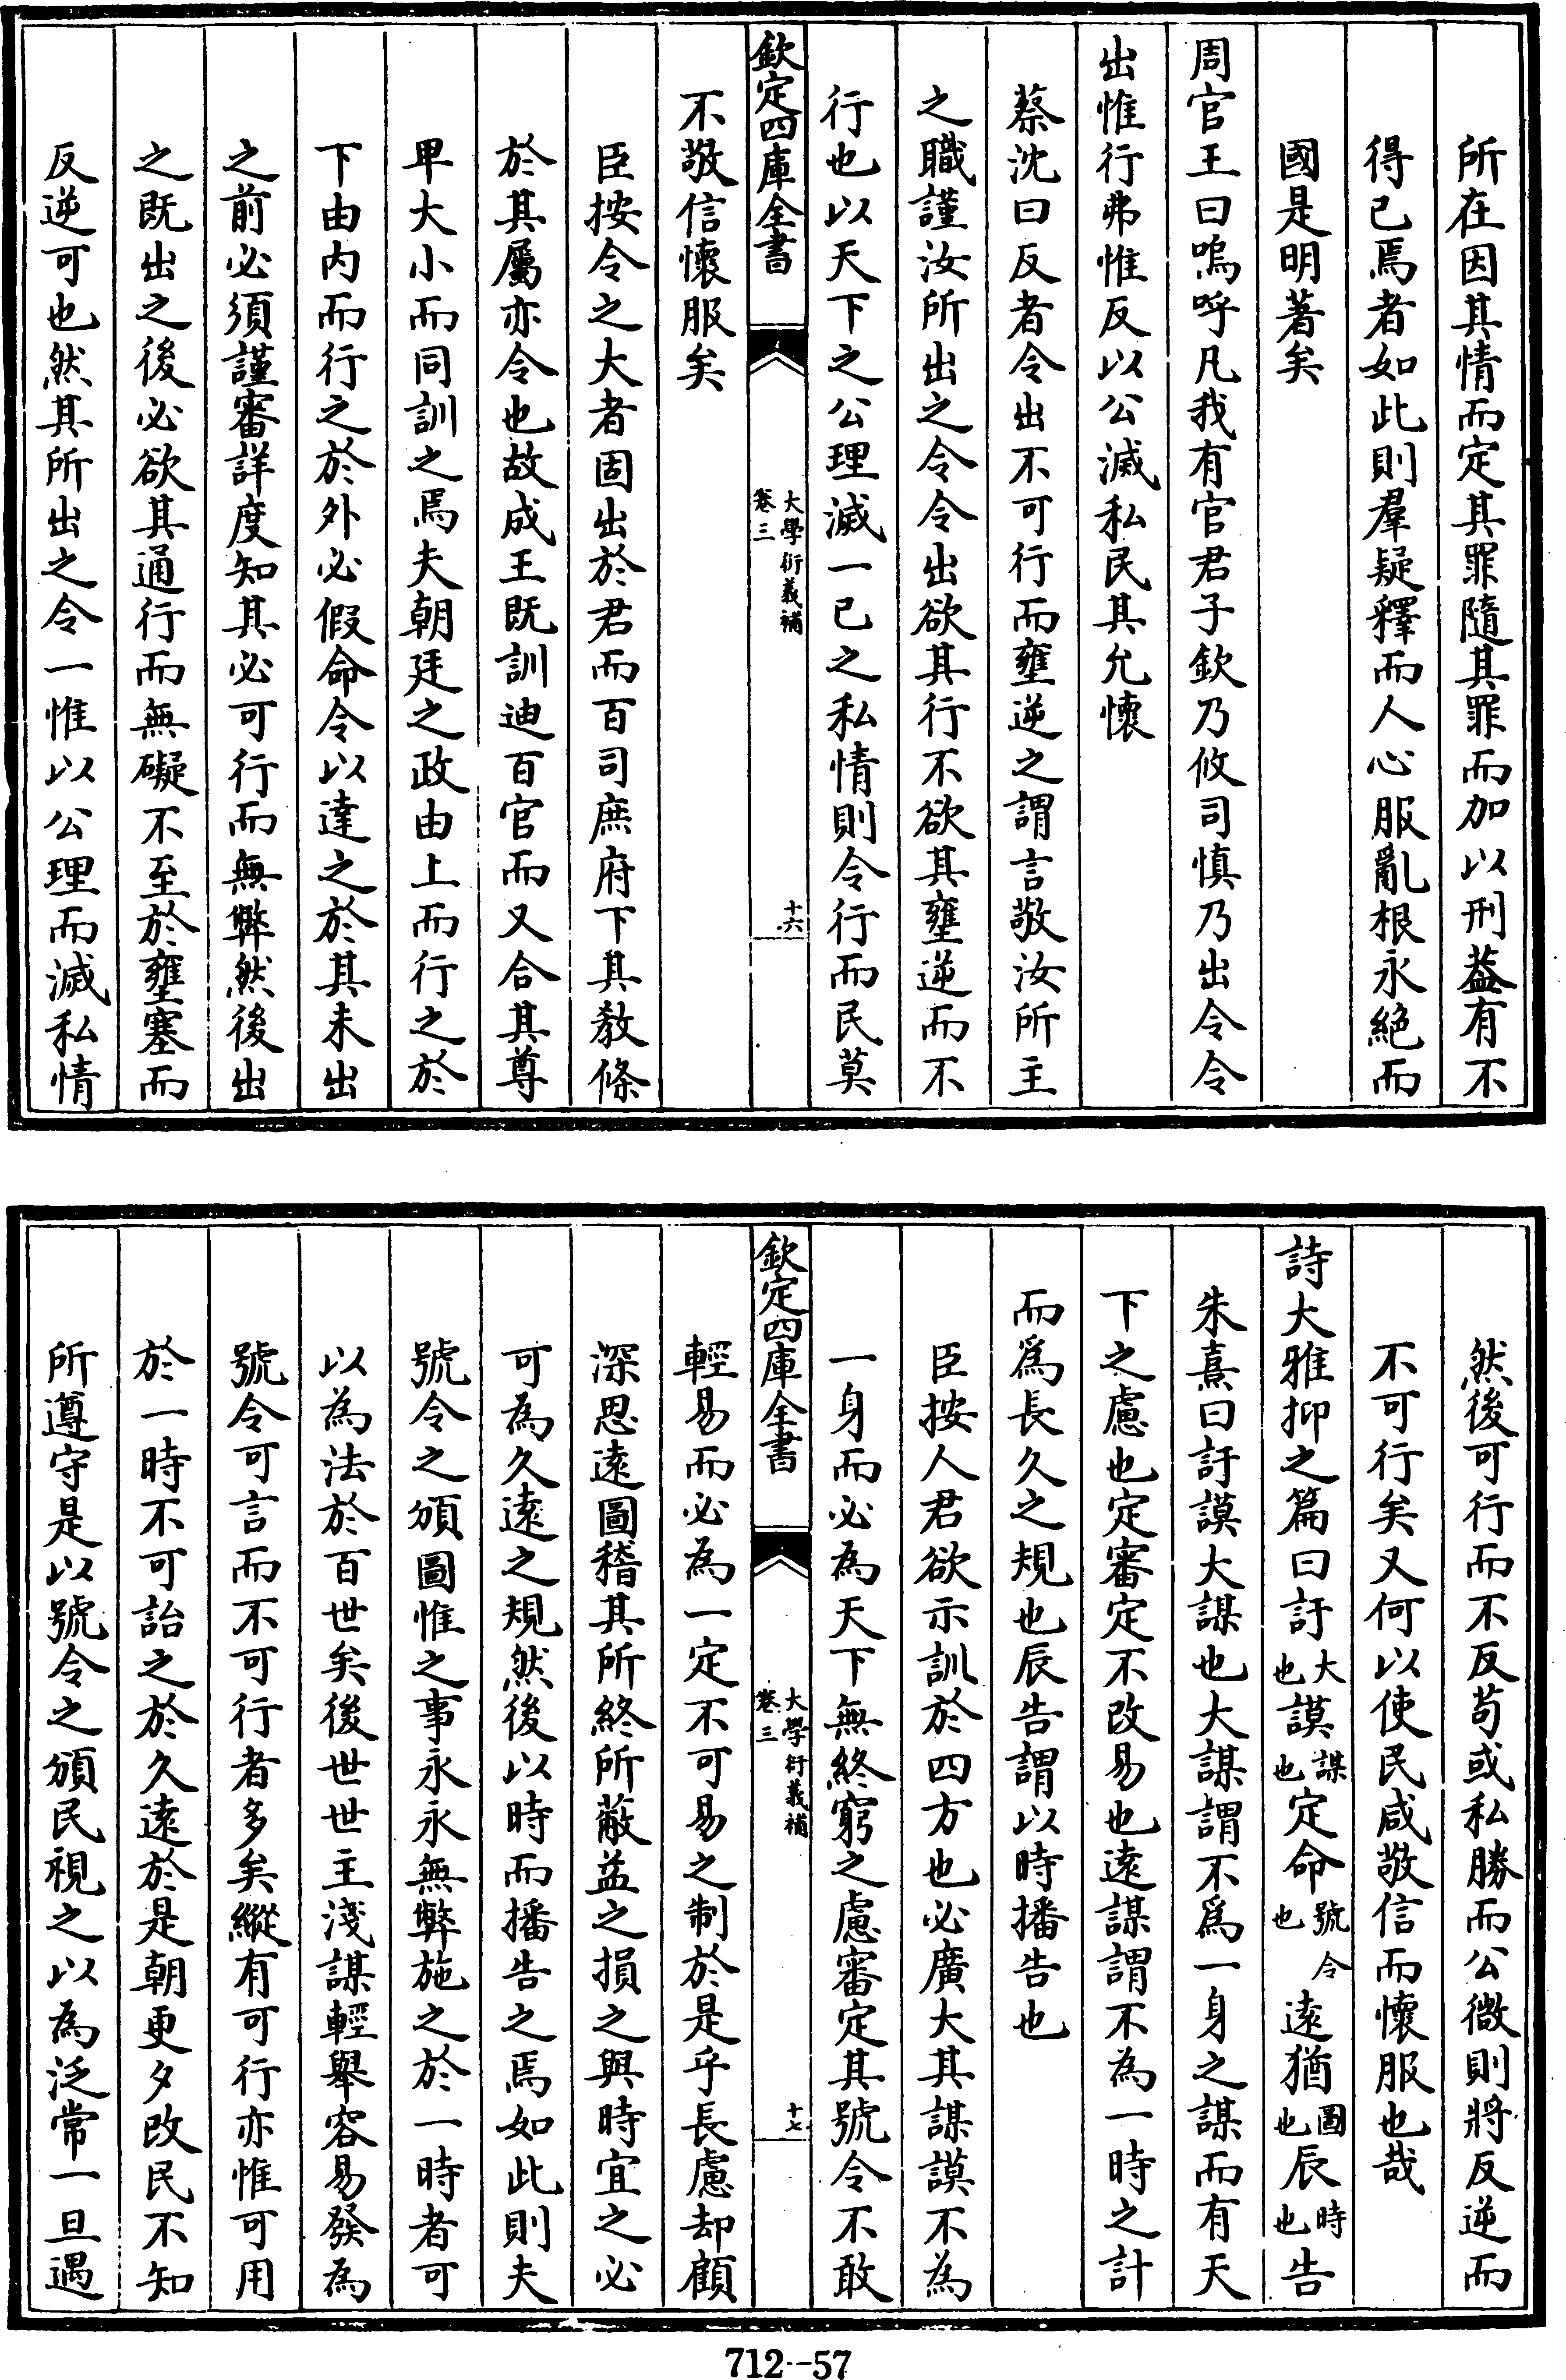 所在因其情而定其罪隨其罪而加以刑葢有不
得已焉者如此則羣疑釋而人心服亂根永絕而
國是明著矣
周官王曰嗚呼凡我有官君子欽乃攸司慎乃出令令
出惟行弗惟反以公滅私民其允懷
蔡沈曰反者令出不可行而壅逆之謂言敬汝所主
之職謹汝所出之令令出欲其行不欲其壅逆而不
行也以天下之公理滅一已之私情則令行而民莫
欽定四庫全書
大學衍義補
卷三
十六
不敬信懷服矣
臣按令之大者固出於君而百司庶府下其教條
於其屬亦令也故成王既訓迪百官而又合其尊
卑大小而同訓之焉夫朝廷之政由上而行之於
下由内而行之於外必假命令以達之於其未出
之前必須謹審詳度知其必可行而無弊然後出
之既出之後必欲其通行而無礙不至於壅塞而
反逆可也然其所出之令一惟以公理而滅私情
然後可行而不反苟或私勝而公微則將反逆而
不可行矣又何以使民咸敬信而懷服也哉
詩大雅抑之篇曰訏大也謨謀也定命號令也遠猶圖也辰時也告
朱熹曰訏謨大謀也大謀謂不爲一身之謀而有天
下之慮也定審定不改易也遠謀謂不為一時之計
而爲長久之規也辰告謂以時播告也
臣按人君欲示訓於四方也必廣大其謀謨不為
一身而必為天下無終窮之慮審定其號令不敢
欽定四庫全書
大學衍義補
卷三
十七
輕易而必為一定不可易之制於是乎長慮却顧
深思遠圖稽其所終所蔽益之損之與時宜之必
可為久遠之規然後以時而播告之焉如此則夫
號令之頒圖惟之事永永無弊施之於一時者可
以為法於百世矣後世世主淺謀輕舉容易發為
號令可言而不可行者多矣縱有可行亦惟可用
於一時不可詒之於久遠於是朝更夕改民不知
所遵守是以號令之頒民視之以為泛常一旦遇
712--57